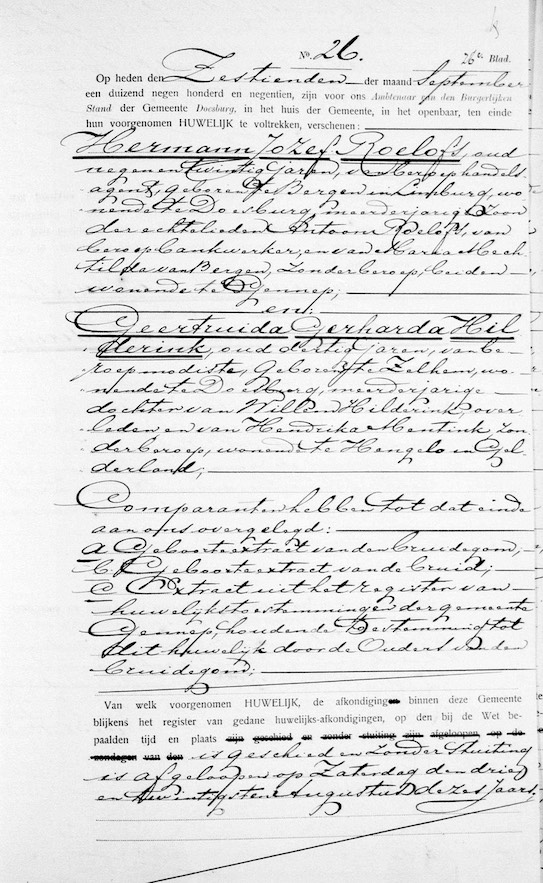 No. 26.
26e Blad.
Op heden den Zestienden der maand September
een duizend negen honderd en negentien, zijn voor ons Ambtenaar van den Burgerlijken
Stand der Gemeente Doesburg, in het huis der Gemeente, in het openbaar, ten einde
hun voorgenomen HUWELIJK te voltrekken, verschenen:
Hermann Jozef Roelofs, oud
negenentwintig jaren, van beroep handels
agent, geboren te Bergen in Limburg, wo-
nende te Doesburg, meerderjarige zoon
der echtelieden Antoon Roelofs, van
beroep bankwerker, en van Maria Mech
tilda van Bergen, zonder beroep, beiden
wonende te Gennep;
en:
Geertruida Gerharda Hil
derink, oud dertig jaren, van be-
roep modiste, geboren te Zelhem, wo-
nende te Doesburg, meerderjarige
dochter van Willem Hilderink, over
leden en van Hendrika Mentink, zon
der beroep, wonende te Hengelo in Gel
derland;
Comparanten hebben tot dat einde
aan ons overgelegd:
a Geboorteextract van den bruidegom;
b Geboorteextract van de bruid;
c Extract uit het register van
huwelijkstoestemmingen der gemeente
Gennep, houdende toestemming tot
dit huwelijk door de Ouders van den
bruidegom;
Van welk voorgenomen HUWELIJK, de afkondigingen binnen deze Gemeente
blijkens het register van gedane huwelijks-afkondigingen, op den bij de Wet be-
paalden tijd en plaats zijn geschied en zonder stuiting zijn afgeloopen op de
zondagen van den is geschied en zonder stuiting
is afgeloopen op Zaterdag den drie
en twintigsten Augustus dezes jaars.